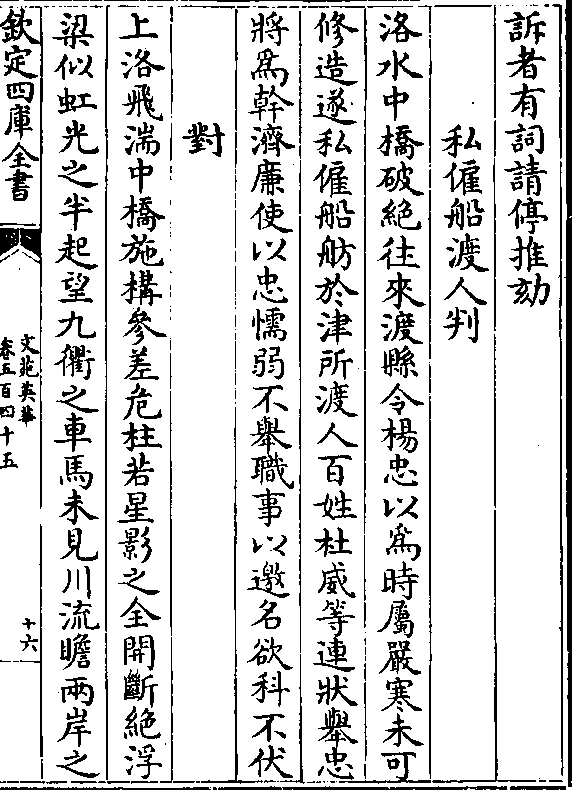 訴者有詞請停推劾
私僱船渡人判
洛水中橋破絶往來渡縣令楊忠以為時屬嚴寒未可
修造遂私僱船舫於津所渡人百姓杜威等連狀舉忠
將為幹濟廉使以忠懦弱不舉職事以邀名欲科不伏
對
上洛飛湍中橋施構參差危柱若星影之全開斷絶浮
梁似虹光之半起望九衢之車馬未見川流瞻兩岸之
欽定四庫全書
文苑英華
卷五百四十五
十六